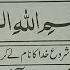 بسم اللہ ال
شروع خدا کا نام لے کر